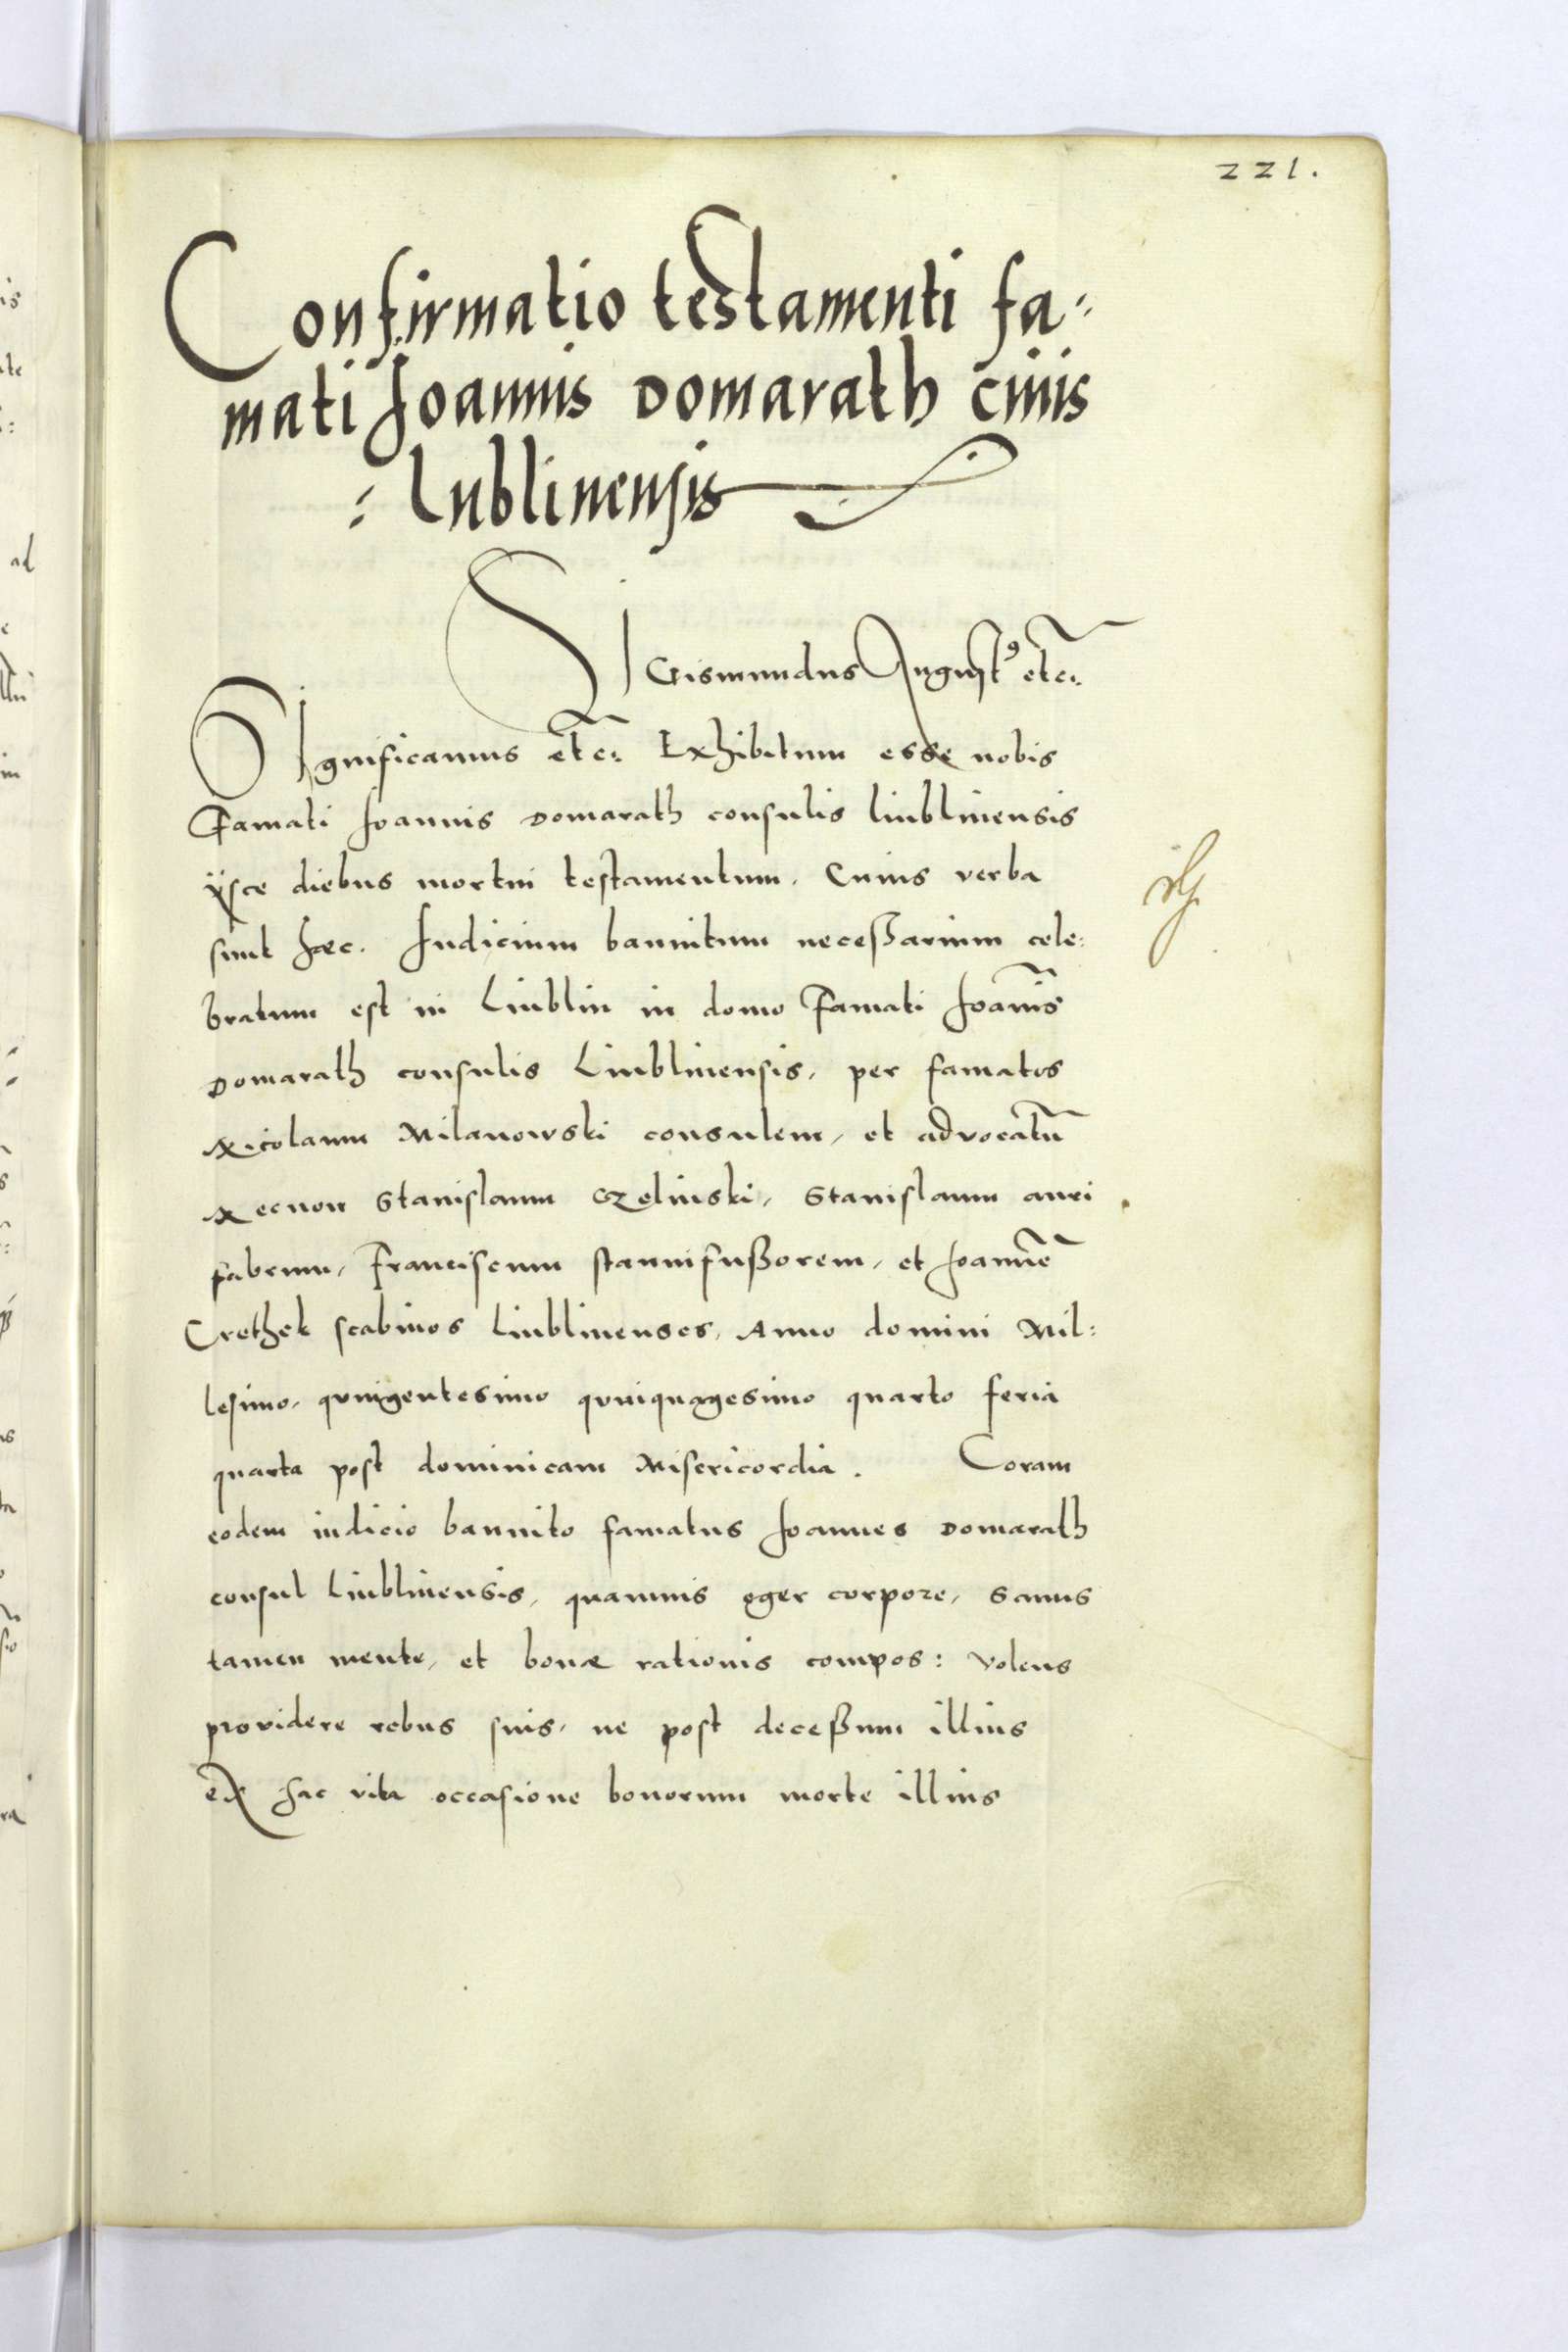 221.
Confirmatio testamenti fa-
mati Joannis Domarath civis
Lublinensis
Sigismundus August9 etc.
Significamus etc. Exhibitum esse nobis
Famati Joannis Domarath consulis Liublinensis
ijsce diebus mortui testamentum. Cuius verba
sunt haec. Judicium bannitum necessarium cele:
bratum est in Liublin in domo Famati Joānis
Domarath consulis Liublinensis, per famatos
Nicolaum Milanowski consulem, et advocatū
Necnon Stanislaum Czelinski, Stanislaum auri
fabrum, Franciscum stannifussorem, et Joannē
Crethek scabinos Liublinenses, Anno domini Mil:
lesimo, quingentesimo quinquagesimo quarto feria
quarta post dominicam Misericordia. Coram
eodem iudicio bannito famatus Joannes Domarath
consul Liublinensis, quamvis ęger corpore, sanus
tamen mente, et bonae rationis compos: volens
providere rebus suis, ne post decessum illius
ex hac vita occasione bonorum morte illius